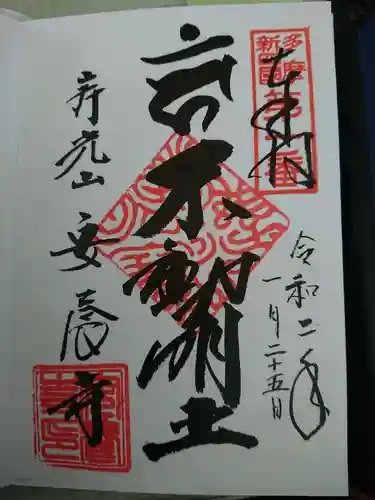 奉拝
多摩
新四国
令和二年
一月二十五日
不動明王
寿光山 安養寺